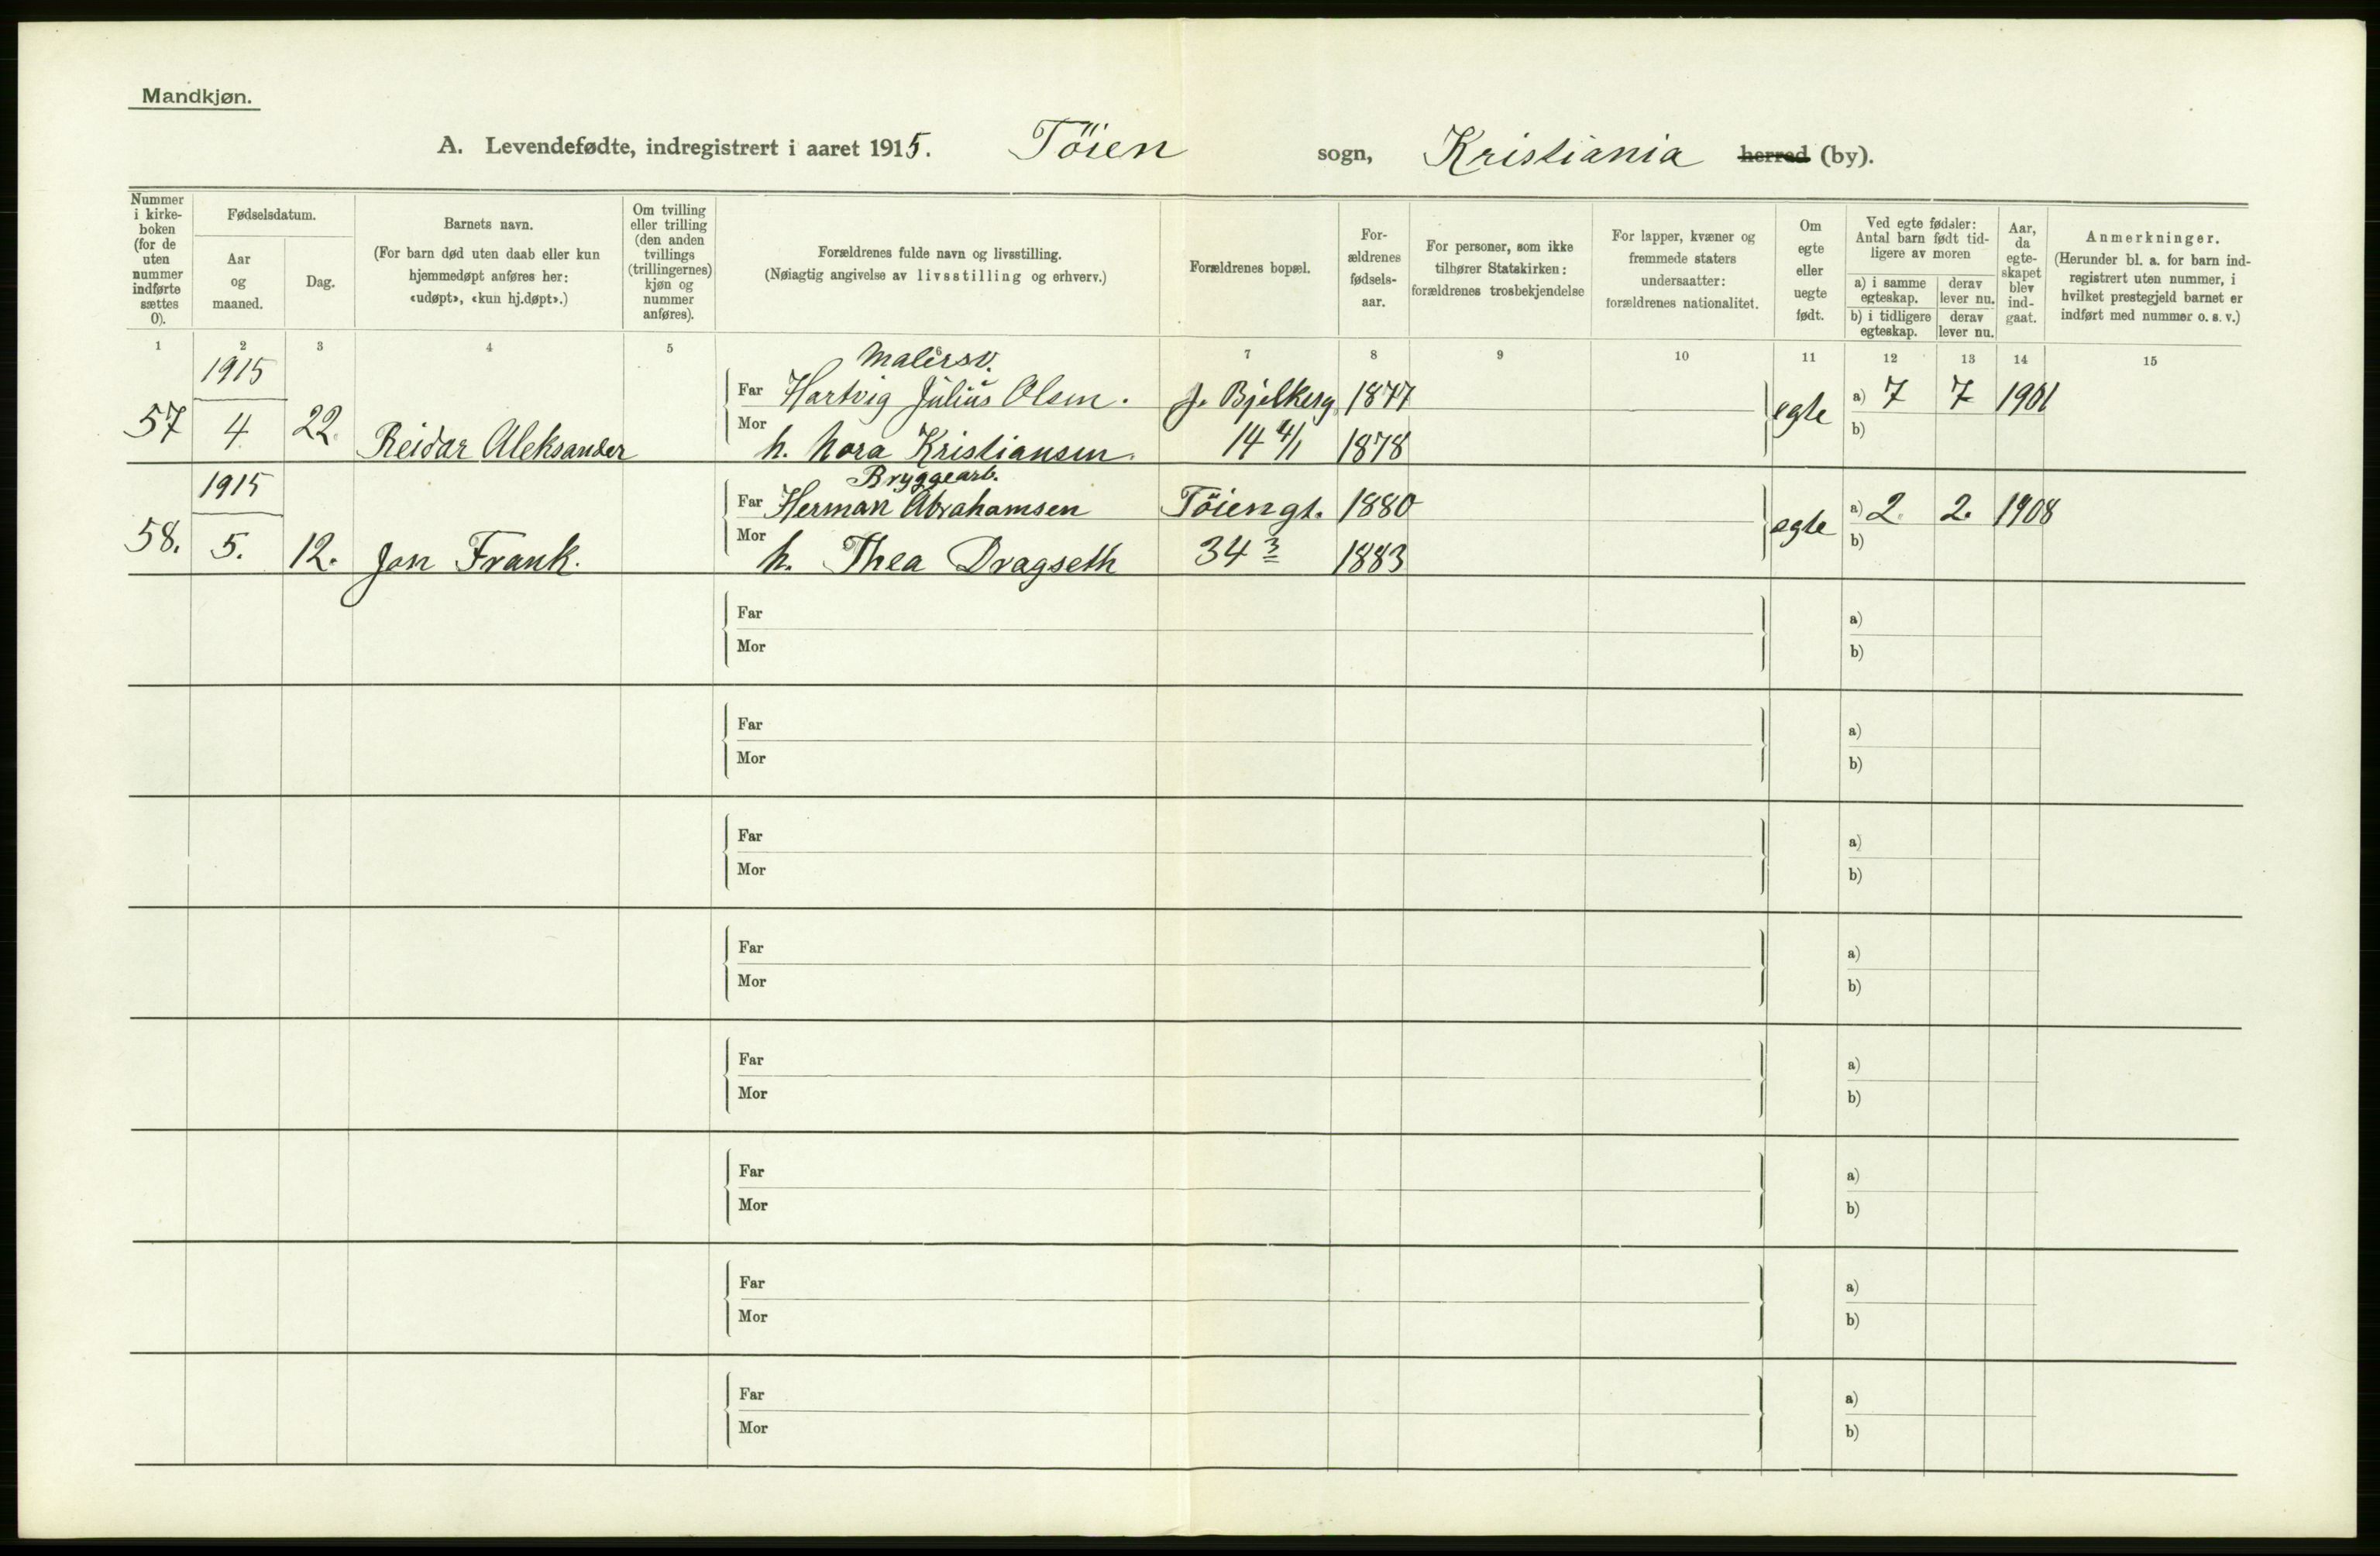 Mandkjøn.
A. Levendefødte, indregistrert i aaret 1915. Töien sogn, Kristiania herred (by).
Nummer i kirke-boken (for de uten nummer indførte sættes 0).
Fødselsdatum.
Aar og maaned.
Dag.
Barnets navn.
(For barn død uten daab eller kun hjemmedøpt anføres her: «udøpt», «kun hj.døpt».)
Om tvilling eller trilling (den anden tvillings (trillingernes) kjøn og nummer anføres).
Forældrenes fulde navn og livsstilling.
(Nøiagtig angivelse av livsstilling og erhverv.)
Forældrenes bopæl.
For-ældrenes fødsels-aar.
For personer, som ikke tilhører Statskirken: forældrenes trosbekjendelse
For lapper, kvæner og fremmede staters undersaatter: forældrenes nationalitet.
Om egte eller uegte født.
Ved egte fødsler: Antal barn født tid-ligere av moren
a) i samme egteskap.
derav lever nu.
b) i tidligere egteskap.
derav lever nu.
Aar, da egte-skapet blev ind-gaat.
Anmerkninger.
(Herunder bl. a. for barn ind-registrert uten nummer, i hvilket prestegjeld barnet er indført med nummer o. s. v.)
1 2 3 4 5 6 7 8 9 10 11 12 13 14 15
1915 Malersv.
Far Hartvig Julius Olsen. J. Bjelkesg. 1877 egte a) 7 7 1901
57 4 22. Reidar Aleksander Mor h. Nora Kristiansen. 14 4/1 1878 b)
1915 Bryggearb.
Far Herman Abrahamsen Töiengt. 1880 egte a) 2. 2. 1908
58. 5. 12. Jon Frank. Mor h. Thea Dragseth 34 3 1883 b)
Far a)
Mor b)
Far a)
Mor b)
Far a)
Mor b)
Far a)
Mor b)
Far a)
Mor b)
Far a)
Mor b)
Far a)
Mor b)
Far a)
Mor b)